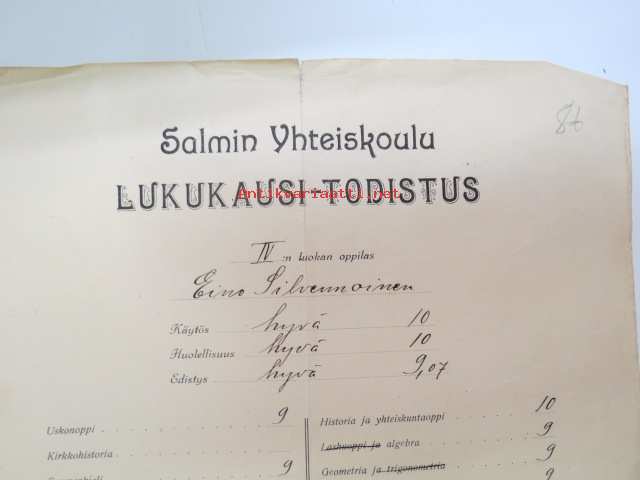 8t
Salmin Yhteiskoulu
LUKUKAUSI-TODISTUS
Antikvariaatti.net
IV :n luokan oppilas
Eino Silvennoinen
Käytös hyvä 10
Huolellisuus hyvä 10
Edistys hyvä 9,07
Uskonoppi 9
Kirkkohistoria
9
Historia ja yhteiskuntaoppi 10
Laskuoppi ja algebra 9
Geometria ja trigonometria 9
9